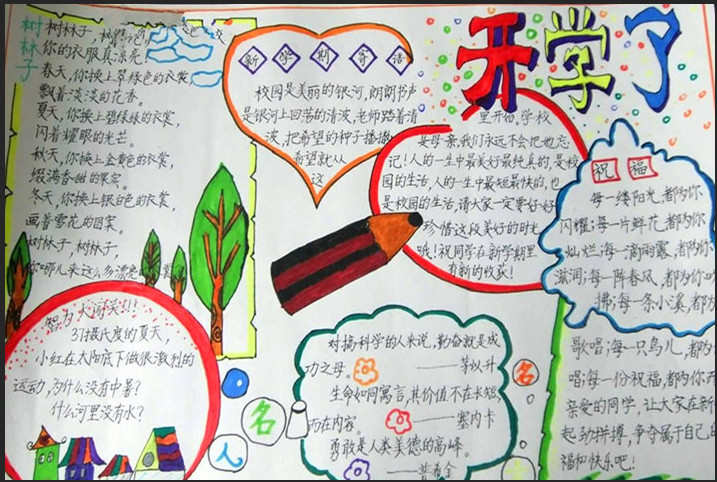 开学了
树林子
树林子,树林子,
你的衣服真漂亮
春天,你换上翠绿色的衣裳,
飘着淡淡的花香。
夏天,你换上碧绿绿的衣裳,
闪着耀眼的光芒。
秋天,你换上金黄色的衣裳,
缀满香甜的果实。
冬天,你换上银白色的衣裳,
画着雪花的图案。
树林子,树林子,
你哪儿来这么多漂亮
新学期寄语
校园是美丽的银河,朗朗书声
是银河上回荡的清波,老师踏着清
波,把希望的种子播撒
希望就从
这
里开始,学校
是母亲,我们永远不会把她忘
记!人的一生中最美好最纯真的,是校
园的生活,人的一生中最短最快的,也
是校园的生活,请大家一定要好好
珍惜这段美好的时光
哦!祝同学在新学期里
有新的收获!
祝福
每一缕阳光,都为你
闪耀;每一片鲜花,都为你
灿烂;每一滴雨露,都为你
滋润;每一阵春风,都为你吹
拂;每一条小溪,都为
歌唱;每一只鸟儿,都
唱;每一份祝福,都为你
亲爱的同学,让大家在新
起劲拼搏,争夺属于自己的
福和快乐吧!
智力大阅关!!!
37摄氏度的夏天,
小红在太阳底下做很激烈的
运动,为什么没有中暑?
什么河里没有水?
名人名
对搞科学的人来说,勤奋就是成
功之母。
——茅以升
生命如同寓言,其价值不在长短,
而在内容。
——塞内卡
勇敢是人类美德的高峰。
——普希金